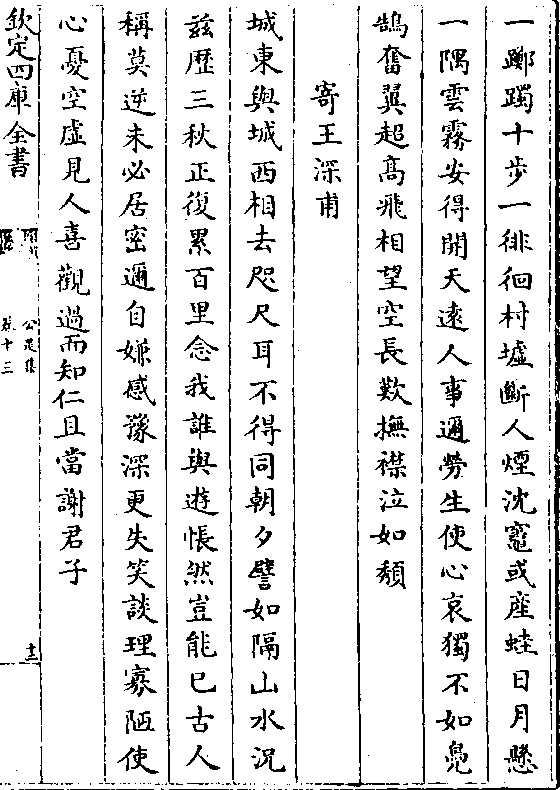 一躑躅十步一徘徊村墟斷人煙沈竈或產蛙日月懸
一隅雲霧安得開天遠人事邇勞生使心哀獨不如鳧
鵠奮翼超髙飛相望空長歎撫襟泣如頽
寄王深甫
城東與城西相去咫尺耳不得同朝夕譬如隔山水況
兹歴三秋正復累百里念我誰與遊悵然豈能已古人
稱莫逆未必居密邇自嫌感豫深更失笑談理寡陋使
心憂空虛見人喜觀過而知仁且當謝君子
欽定四庫全書
公是集
卷十三
十二